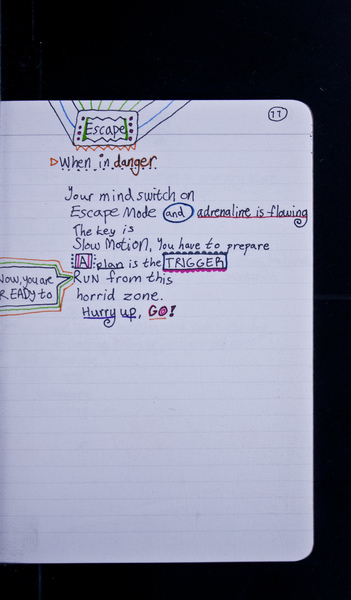 77
Escape
When in danger
Your mind switch on
Escape Mode and adrenaline is flowing
The key is
Slow Motion, You have to prepare
A plan is the TRIGGER
Now, you are
READY to
RUN from this
horrid zone.
Hurry up, GO!